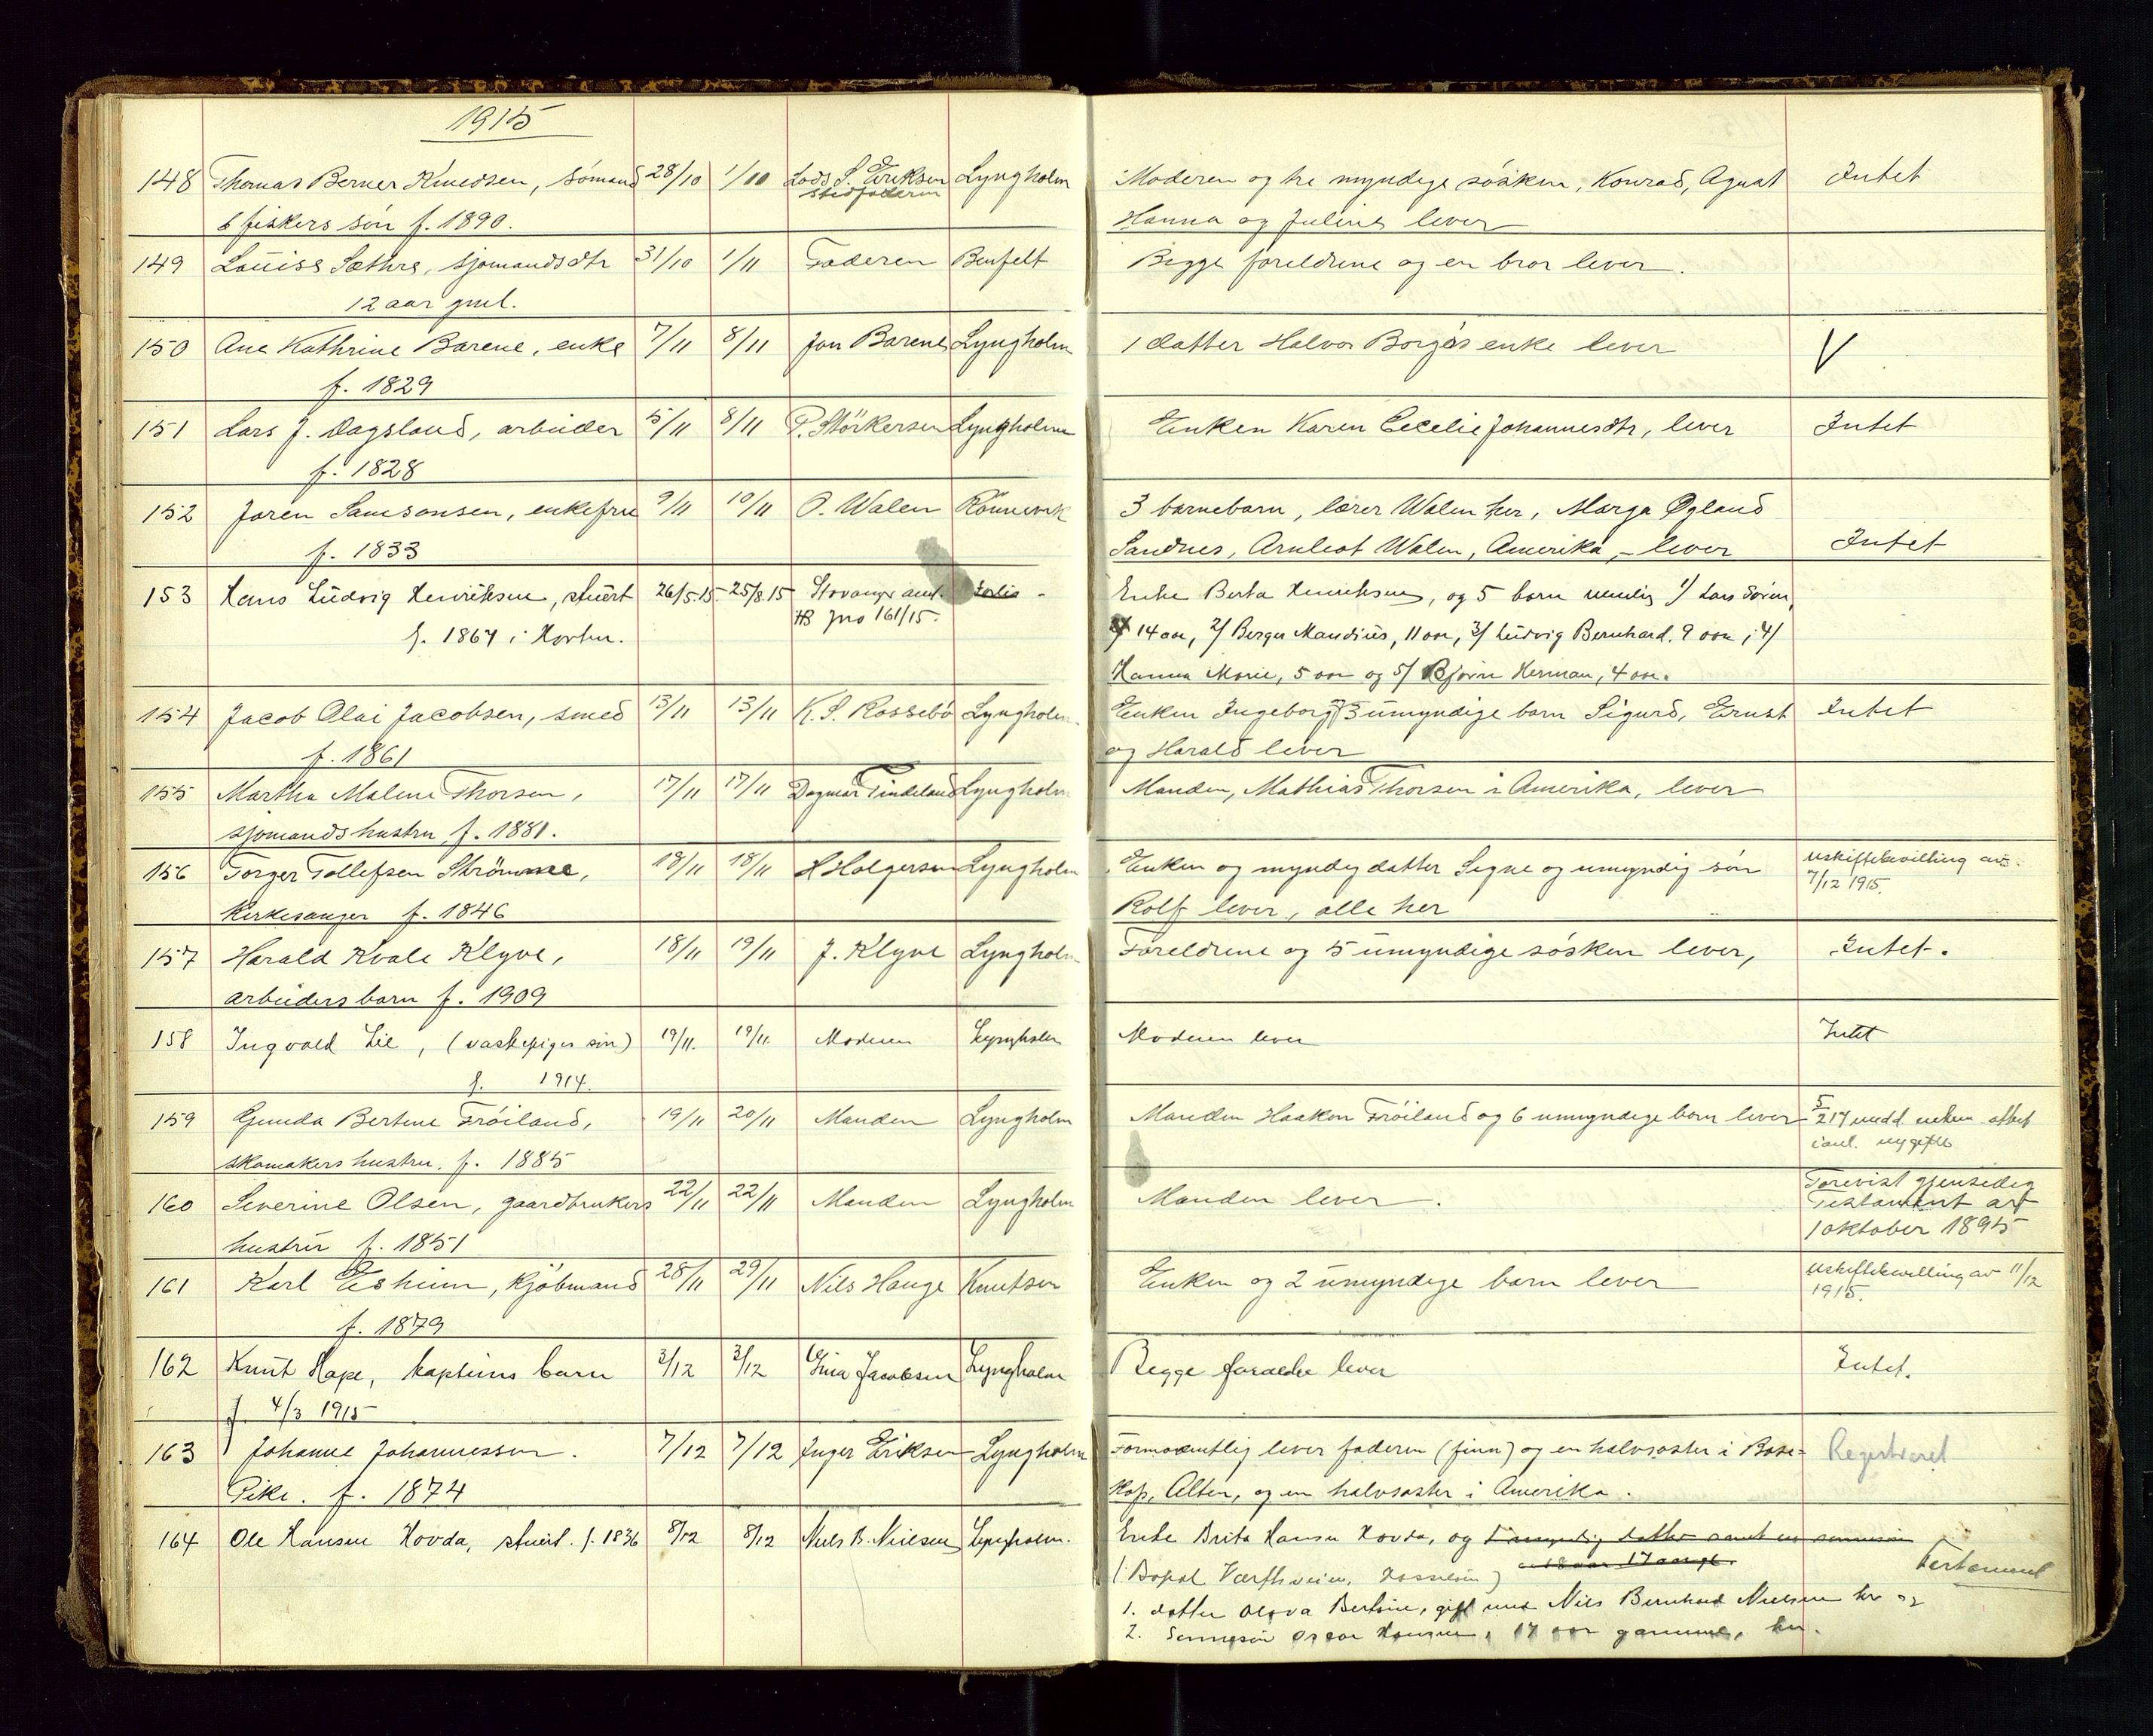 1915
148 Thomas Berner Knudsen, sömand 28/10 1/10 Lods S. Eriksen Lyngholm Moderen og tre myndige søsken, Konrad, Agnat Intet
stedfaderen
& fiskers søn f. 1890. Hanna og Julius lever
149 Louise Sæthre, sjomandsdtr 31/10 1/11 Faderen Benfelt Begge foreldrene og en bror lever.
12 aar gml.
150 Ane Kathrine Barene, enke 7/11 8/11 Jon Barene Lyngholm 1 datter Halvor Borgøs enke lever V
f. 1829
151 Lars J. Dagsland, arbeider 5/11 8/11 P. Störkersen Lyngholm Enken Karen Cecelie Johannesdtr, lever Intet
f. 1828
152 Joren Samsonsen, enkefru 9/11 10/11 O. Walen Rönnevik 3 barnebarn, lærer Walen her, Marga Øgland
f. 1833 Sandnes, Arnleot Walen, Amerika, - lever Intet
153 Hans Ludvig Henriksen, stuert 26/5.15. 25/8.15 Stavanger amt. Enke Berta Henriksen, og 5 barn nemlig 1/ Lars Søren,
f. 1867 i Horten. HB jno 161/15. 14 aar, 2/ Berger Mandius, 11 aar, 3/ Ludvig Bernhard. 9 aar, 4/
Hanna Marie, 5 aar og 5/ Bjørn Herman, 4 aar.
154 Jacob Olai Jacobsen, smed 13/11 13/11 K. S. Rossebö Lyngholm Enken Ingeborg og 3 umyndige barn Sigurd, Ernst Intet
f. 1861 og Harald lever
155 Martha Malene Thorsen, 17/11 17/11 Dagmar Tindeland Lyngholm Manden, Mathias Thorsen i Amerika, lever
sjomandshustru f. 1881.
156 Torger Tollefsen Strömme, 18/11 18/11 H Holgersen Lyngholm Enken og myndig datter Signe og umyndig søn Uskiftebevilling av
7/12 1915.
Kirkesanger f. 1846 Rolf lever, alle her
157 Harald Kvale Klyve, 18/11 19/11 J. Klyve Lyngholm Foreldrene og 5 umyndige søsken lever, Intet.
arbeidersbarn f. 1909
158 Ingvald Lie, (vaskepiges søn) 19/11. 19/11. Moderen Lyngholm Moderen lever Intet
f. 1914.
159 Gunda Bertine Fröiland, 19/11 20/11 Manden Lyngholm Manden Haakon Fröiland og 6 umyndige barn lever
skomakershustru. f. 1885
160 Severine Olsen, gaardbrukers 22/11 22/11 Manden Lyngholm Manden lever. Forevist gjensidig
Testament av
hustru f. 1851 1 oktober 1895
161 Karl Esheim, Kjöbmand 28/11 29/11 Nils Hauge Knutsen Enken og 2 umyndige barn lever Uskiftebevilling av 11/12
1915.
f. 1879
162 Knut Hope, kapteins barn 3/12 3/12 Gina Jacobsen Lyngholm Begge forældre lever Intet.
f. 4/3 1915
163 Johanne Johannessen. 7/12 7/12 Inger Eriksen Lyngholm Formodentlig lever faderen (finn) og en halvsøster i Bose= Registreret
Pike. f. 1874 kop, Alten, og en halvsøster i Amerika.
164 Ole Hansen Hovda, stuert. f. 1836 8/12 8/12 Niels B. Nielsen Lyngholm. Enke Brita Hansen Hovda, og
(Bopæl Værftsveien, Hasseløen) Testament
1. datter Olava Bertine, gift med Nils Bernhard Nielsen her og
2. Sønnesøn Oscar Hansen, 17 aar gammel, her.